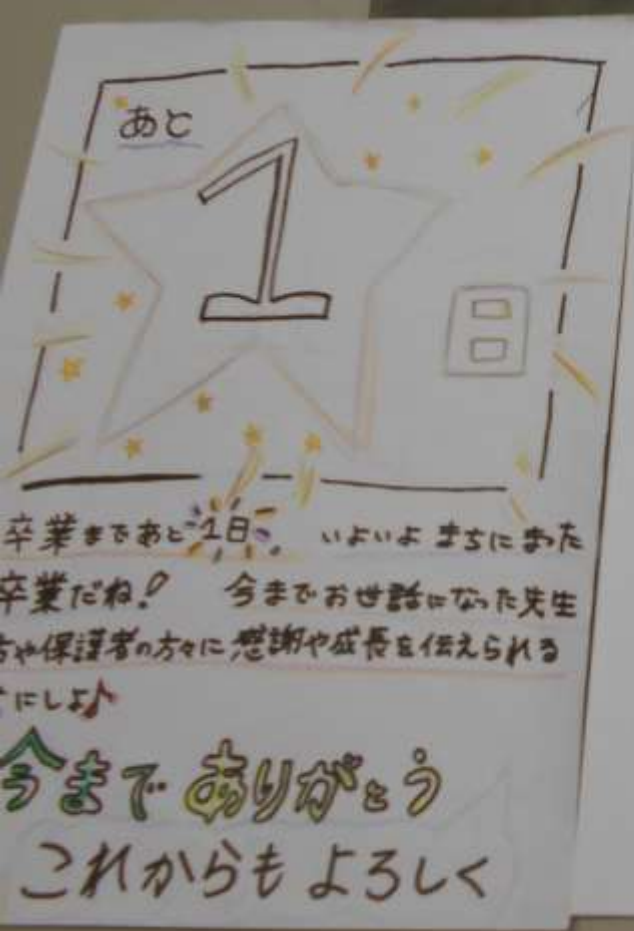 あと
1
日
卒業まであと1日 いよいよまちにまった
卒業だね! 今までお世話になった先生
方や保護者の方々に感謝や成長を伝えられる
にしよ♪
今までありがとう
これからもよろしく